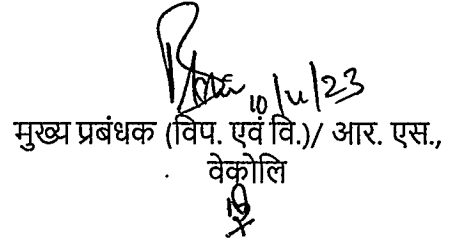 10/11/23
मुख्य प्रबंधक (विप. एवं वि.)/ आर. एस.,
वेकोलि